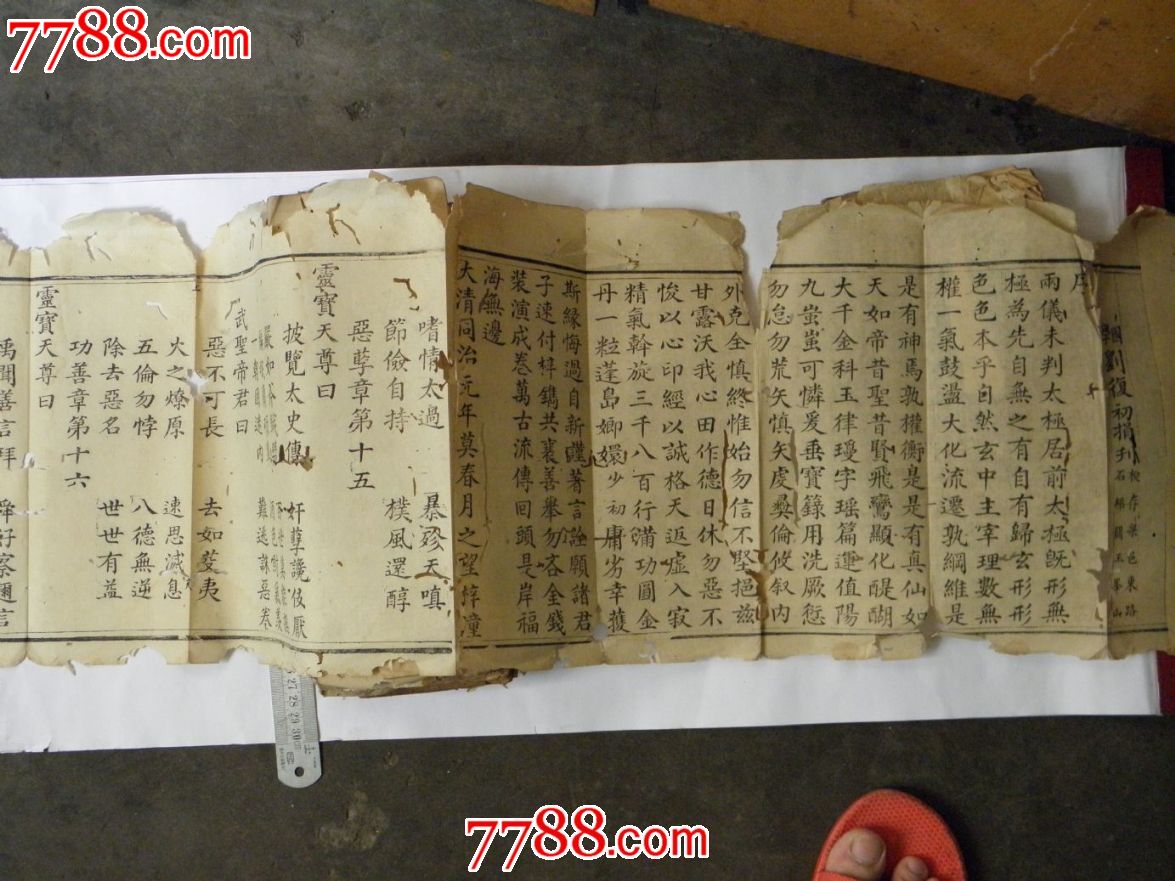 7788.com
劉復初捐刊
板存梁邑東路
序
兩儀未判太極居前太極旣形無
極為先自無之有自有歸玄形形
色色本乎自然玄中主宰理數無
權一氣鼓盪大化流遷孰綱維是
是有神焉孰權衡是是有真仙如
天如帝昔聖昔賢飛鸞顯化醒醐
大千金科玉律璦字瑤篇運值陽
九蚩蚩可憐爰垂寶籙用洗厥愆
勿怠勿荒矣慎矣虔彝倫攸叙內
外克全慎終惟始勿信不堅挹兹
甘露沃我心田作德日休勿惡不
悛以心印經以誠格天返虛入寂
精氣斡旋三千八百行滿功圓金
丹一粒蓬島嫏嬛少初庸劣幸獲
斯緣悔過自新謹著言詮願諸君
子速付梓鐫共襄善舉勿吝金錢
裝演成卷萬古流傳回頭是岸福
海無邊
大清同治元年莫春月之望梓潼
嗜情太過 暴殄天嗔
節儉自持 樸風還醇
惡孽章第十五
靈寶天尊曰
披覽太史傳 奸孽讒伎厭
武聖帝君曰
惡不可長 去如芟夷
火之燎原 速思滅息
五倫勿悖 八德無逆
除去惡名 世世有益
功善章第十六
靈寶天尊曰
禹聞善言拜 舜好察邇言
27 28 29 30
7788.com